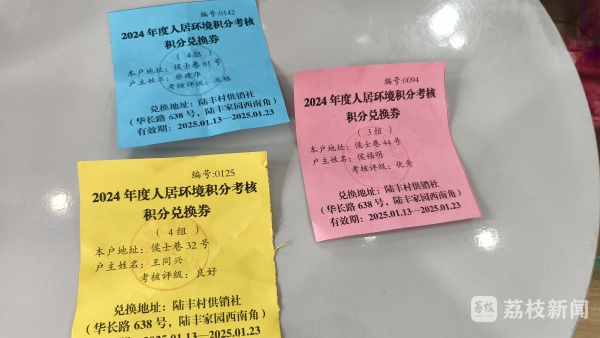 编号:0142
2024 年度人居环境积分考核
积分兑换券
（ 4 组 ）
本户地址：侯士巷 81 号
户主姓名：蔡建华
考核评级：及格
兑换地址：陆丰村供销社
（华长路 638 号，陆丰家园西南角）
有效期：2025.01.13—2025.01.23
编号:0094
2024 年度人居环境积分考核
积分兑换券
（ 3 组 ）
本户地址：侯士巷 44 号
户主姓名：侯福明
考核评级：优秀
兑换地址：陆丰村供销社
（ 华长路 638 号，陆丰家园西南角）
有效期：2025.01.13—2025.01.23
编号:0125
2024 年度人居环境积分考核
积分兑换券
（ 4 组 ）
本户地址：侯士巷 32 号
户主姓名：王同兴
考核评级：良好
兑换地址：陆丰村供销社
（华长路 638 号，陆丰家园西南角）
有效期：2025.01.13—2025.01.23
荔枝新闻